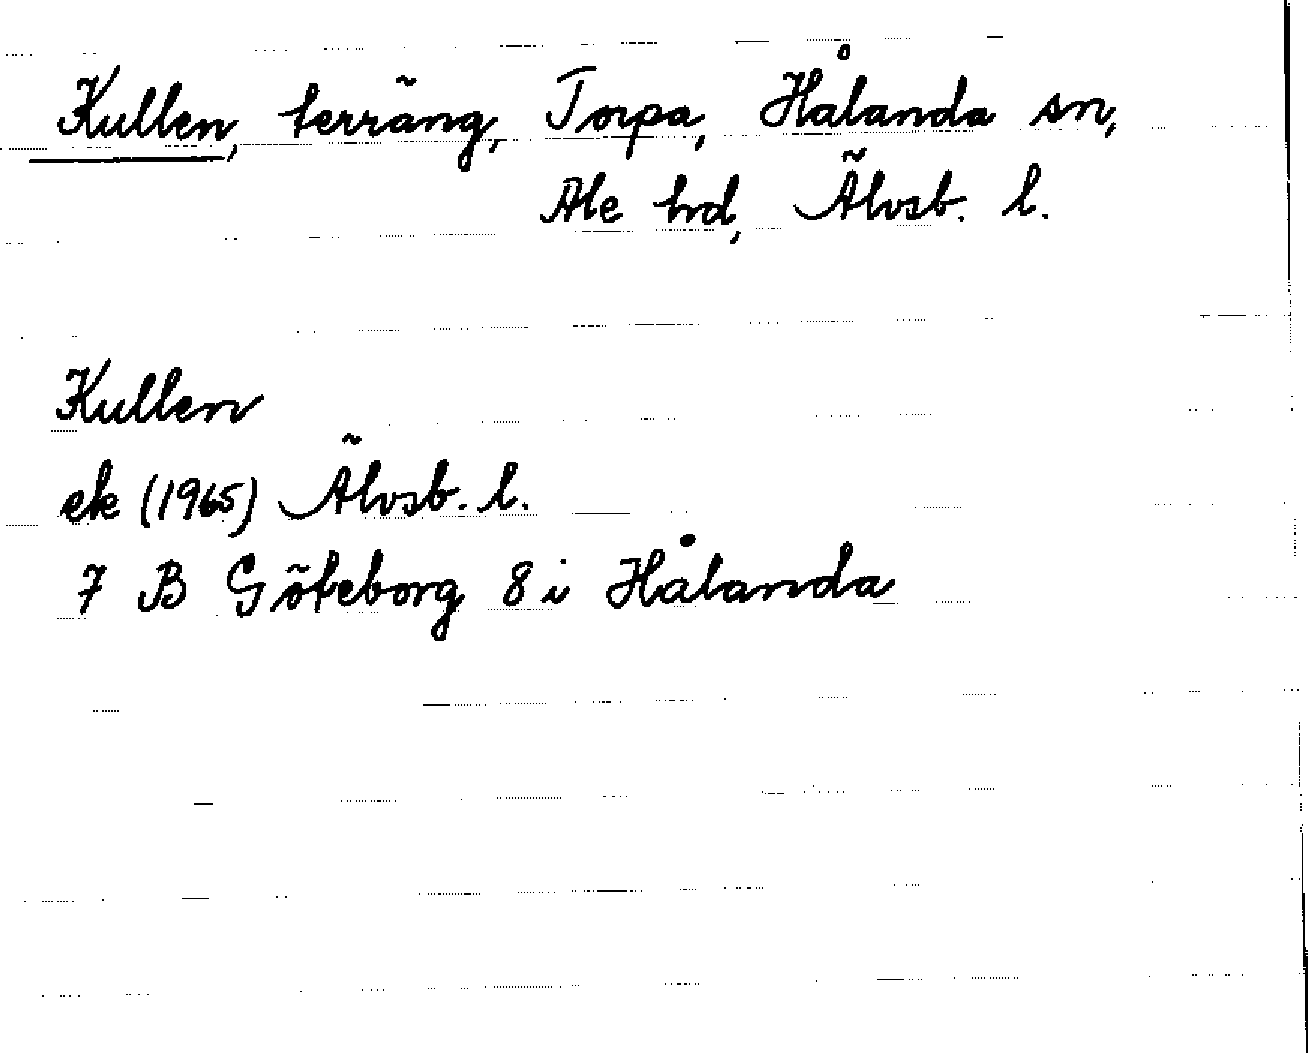 Kullen, terräng, Torpa, Hålanda sn,
Ale hrd, Älvsb. l.
Kullen
ek (1965) Älvsb. l.
7 B Göteborg 8 i Hålanda